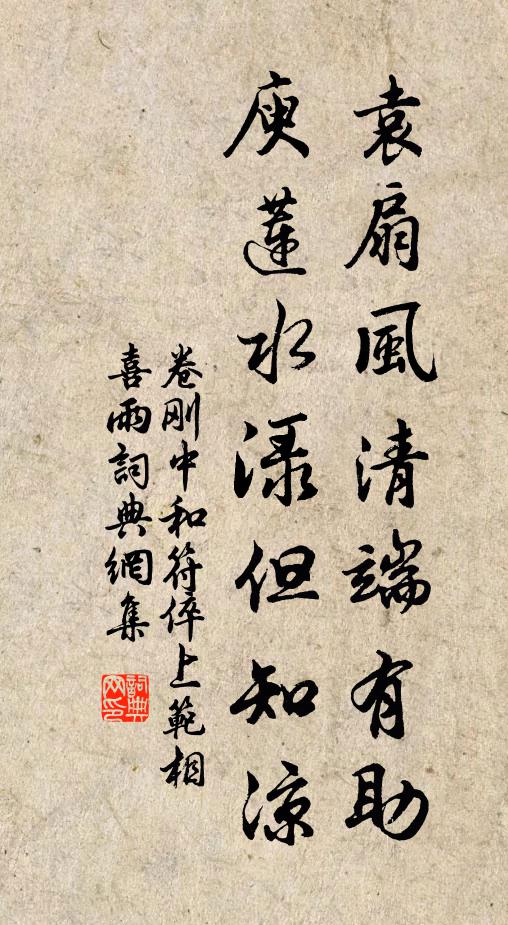 袁扇風清端有助
庾蓮水渌但知涼
卷刚中和符倅上範相
喜雨詞典網集
詞典网印